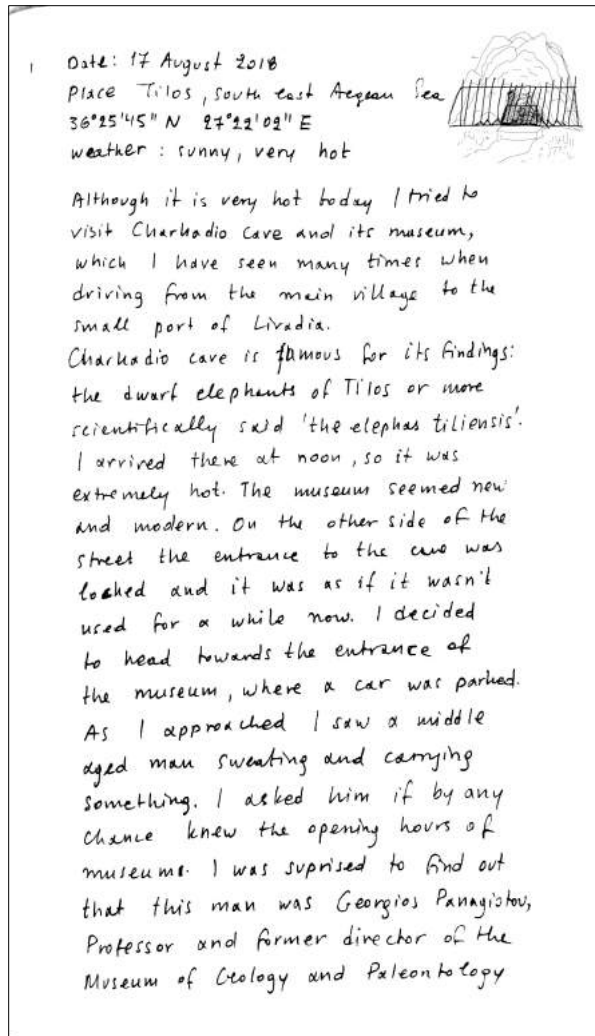 1
Date: 17 August 2018
Place Tilos, south east Aegean Sea
36°25'45" N 27°22'02" E
weather: sunny, very hot
Although it is very hot today I tried to
visit Charkadio cave and its museum,
which I have seen many times when
driving from the main village to the
small port of Livadia.
Charkadio cave is famous for its findings:
the dwarf elephants of Tilos or more
scientifically said 'the elephas tiliensis'.
I arrived there at noon, so it was
extremely hot. The museum seemed new
and modern. On the other side of the
street the entrance to the cave was
locked and it was as if it wasn't
used for a while now. I decided
to head towards the entrance of
the museum, where a car was parked.
As I approached I saw a middle
aged man sweating and carrying
something. I asked him if by any
chance knew the opening hours of
museums. I was suprised to find out
that this man was Georgios Panagistou,
Professor and former director of the
Museum of Geology and Paleontology